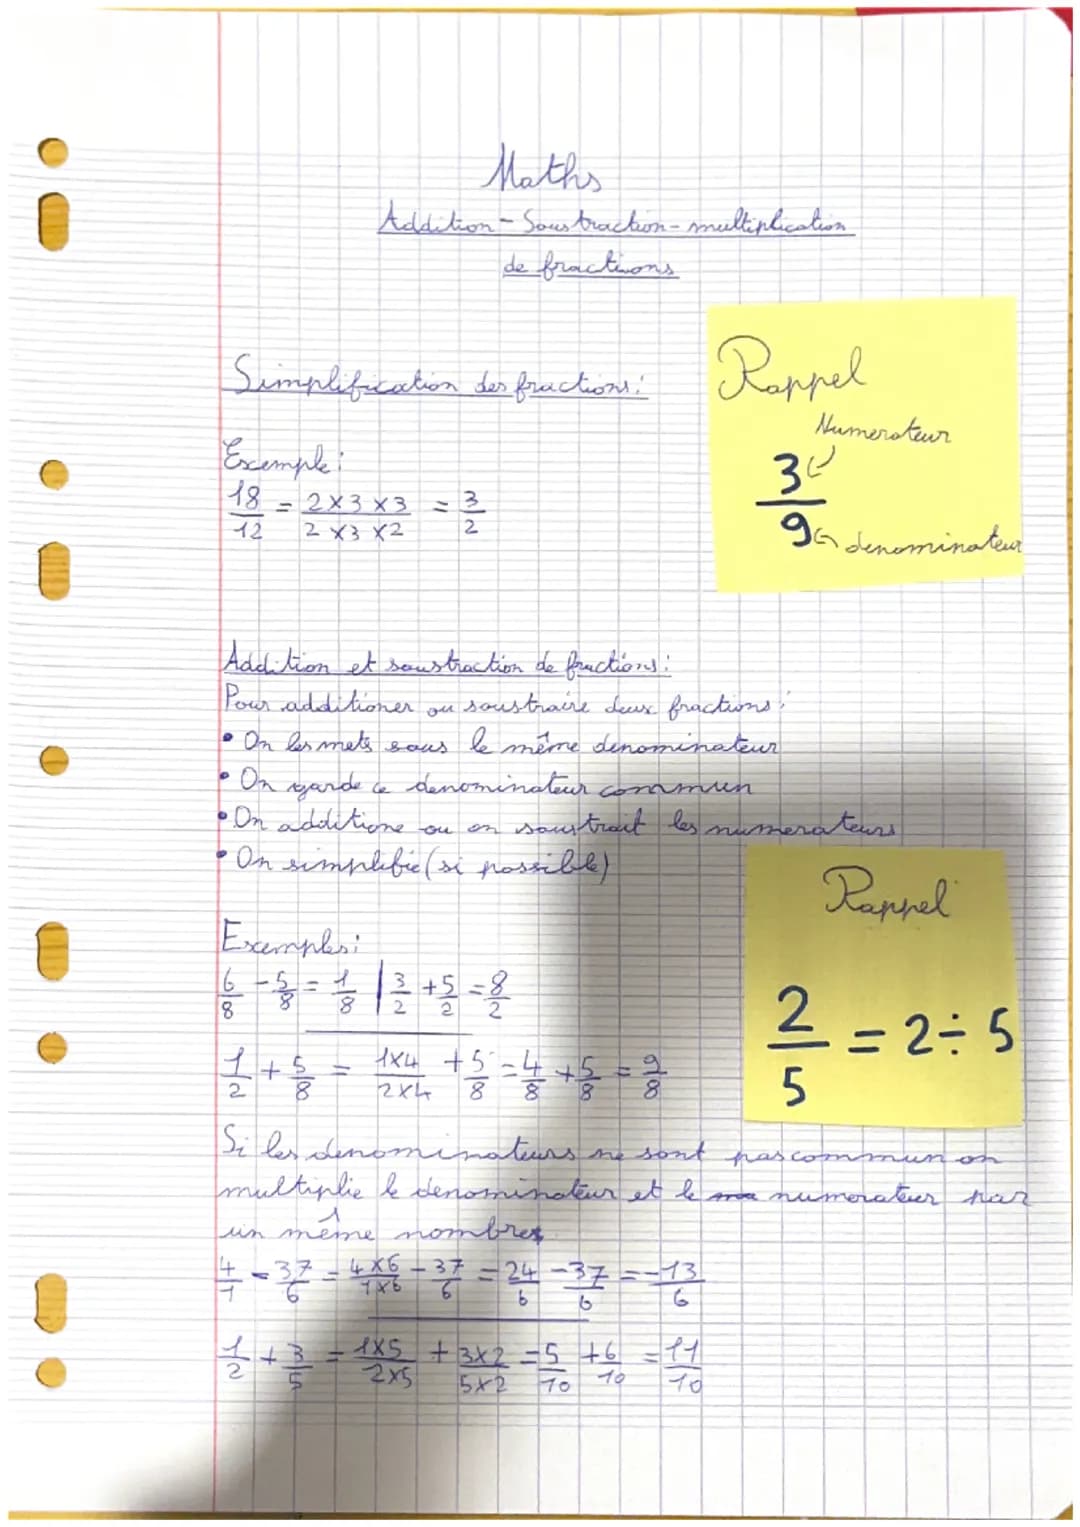 Maths
Addition - Soustraction - multiplication
de fractions
Simplification des fractions :
Rappel
Numerateur
3
9
denominateur
Exemple :
18/12 = 2x3x3/2x3x2 = 3/2
Addition et soustraction de fractions :
Pour additioner ou soustraire deux fractions :
• On les mets sous le même denominateur
• On garde ce denominateur commun
• On additione ou on soustrait les numerateurs
• On simplifie (si possible)
Rappel
2/5 = 2 ÷ 5
Exemples :
6/8 - 5/8 = 1/8 | 3/2 + 5/2 = 8/2
1/2 + 5/8 = 1x4/2x4 + 5/8 = 4/8 + 5/8 = 9/8
Si les denominateurs ne sont pas commun on
multiplie le denominateur et le numerateur par
un même nombre
4/1 - 37/6 = 4x6/1x6 - 37/6 = 24/6 - 37/6 = -13/6
1/2 + 3/5 = 1x5/2x5 + 3x2/5x2 = 5/10 + 6/10 = 11/10